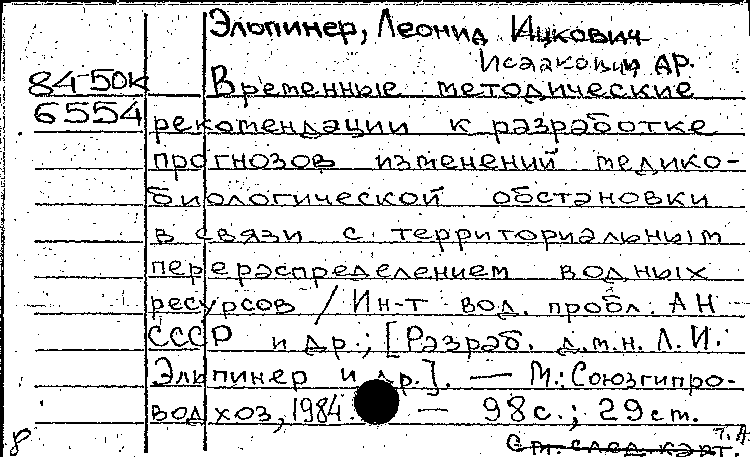 Эльпинер, Леонид Ицкович
Исаакович и др.
84-50к Временные методические
6554 рекомендации к разработке
прогнозов изменений медико-
биологической обстановки
в связи с территориальным
перераспределением водных
ресурсов / Ин-т вод. пробл. АН
СССР и др.; [Разраб. д.м.н. Л. И.
Эльпинер и др.]. — М.: Союзгипро-
водхоз, 1984. — 98 с.; 29 см.
т. А.
8 См. след. карт.